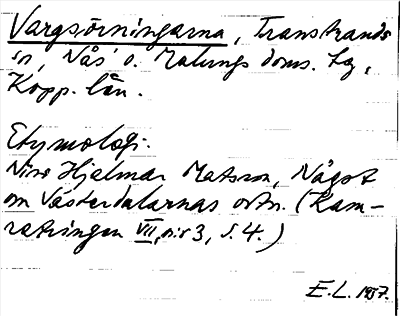 Vargsörningarna, Transtrands
sn, Nås o. Malungs doms. tg,
Kopp. län.
Etymologi.
Hjalmar Matsson, Något
om Västerdalarnas ortn. (Kam-
ratringen VII, nr 3, s. 4.)
E.L. 1937.